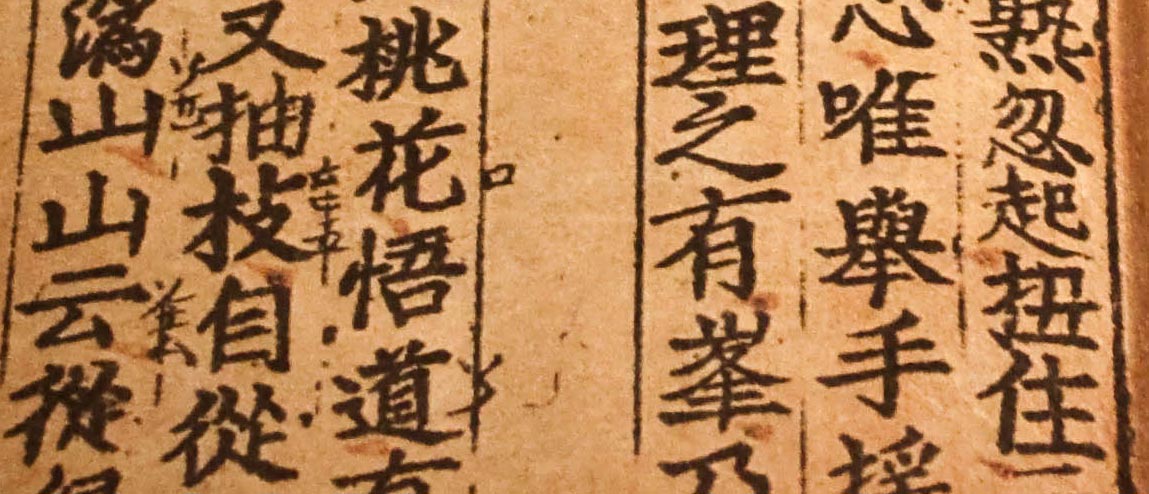 熟忽起扭住
心唯舉手揺
理之有峯乃
桃花悟道有
又抽枝自從
溈山山云從